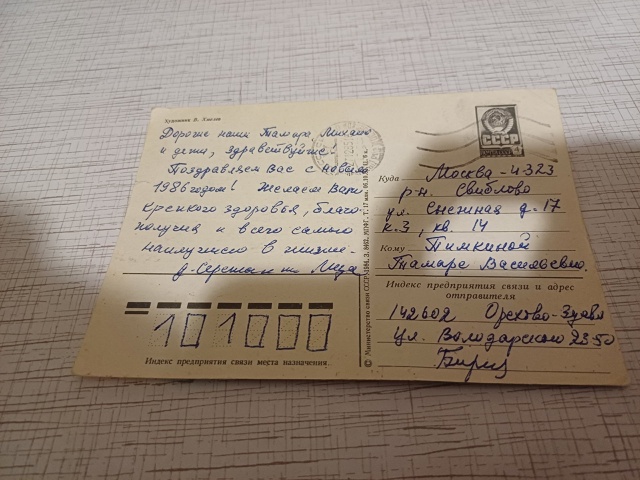 Дорогие наши Тамара, Михаил
и дети, здравствуйте.
Поздравляем Вас с Новым
1986 годом! Желаем Вам
крепкого здоровья, благо-
получия и всего самого
наилучшего в жизни.
Лида
101000
Индекс предприятия связи места назначения.
© Министерство связи СССР
СССР
Куда Москва - И-323
р-н. Свиблово
ул. Снежная д. 17
к.3, кв. 14
Кому Пимкиной
Тамаре Васильевне.
Индекс предприятия связи и адрес
отправителя
142602 Орехово-Зуево
ул. Володарского 23-50